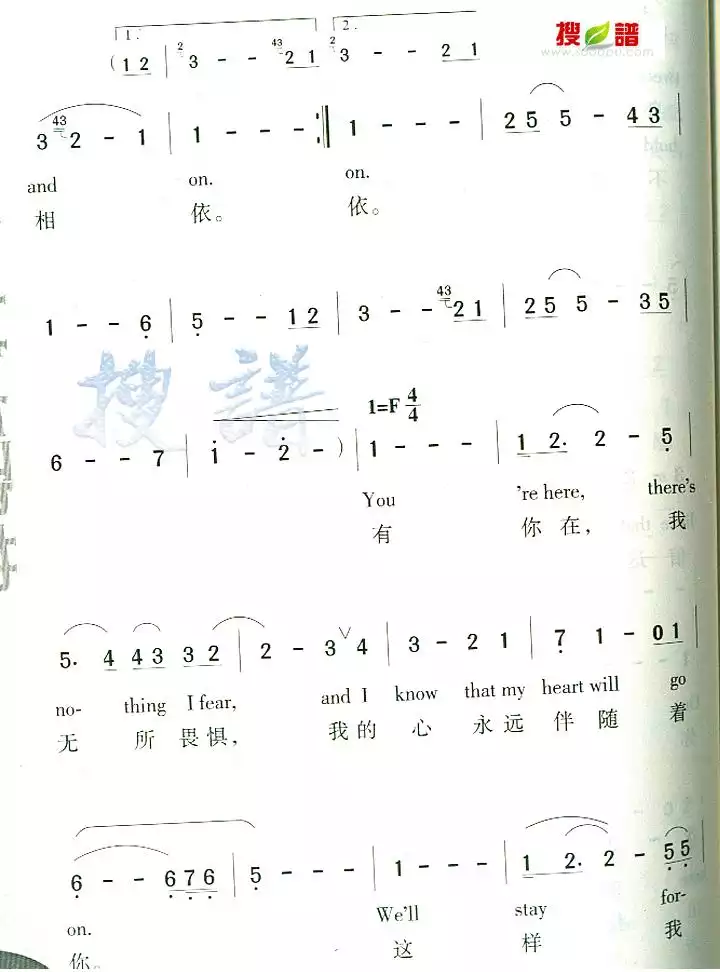 搜谱
www.sooopu.com
1. 2.
(1 2 3 - - 2 1 3 - - 2 1
3 2 - 1 | 1 - - - :|| 1 - - - | 2 5 5 - 4 3 |
and on. on.
相 依。 依。
1 - - 6 | 5 - - 1 2 | 3 - - 2 1 | 2 5 5 - 3 5 |
搜譜
1=F 4/4
6 - - 7 | 1 - 2 - ) | 1 - - - | 1 2. 2 - 5 |
You 're here, there's
有 你 在, 我
5. 4 4 3 3 2 | 2 - 3 4 | 3 - 2 1 | 7 1 - 0 1 |
no- thing I fear, and I know that my heart will go
无 所 畏 惧, 我 的 心 永 远 伴 随 着
6 - - 6 7 6 | 5 - - - | 1 - - - | 1 2. 2 - 5 5 |
on. We'll stay for-
你。 这 样 我